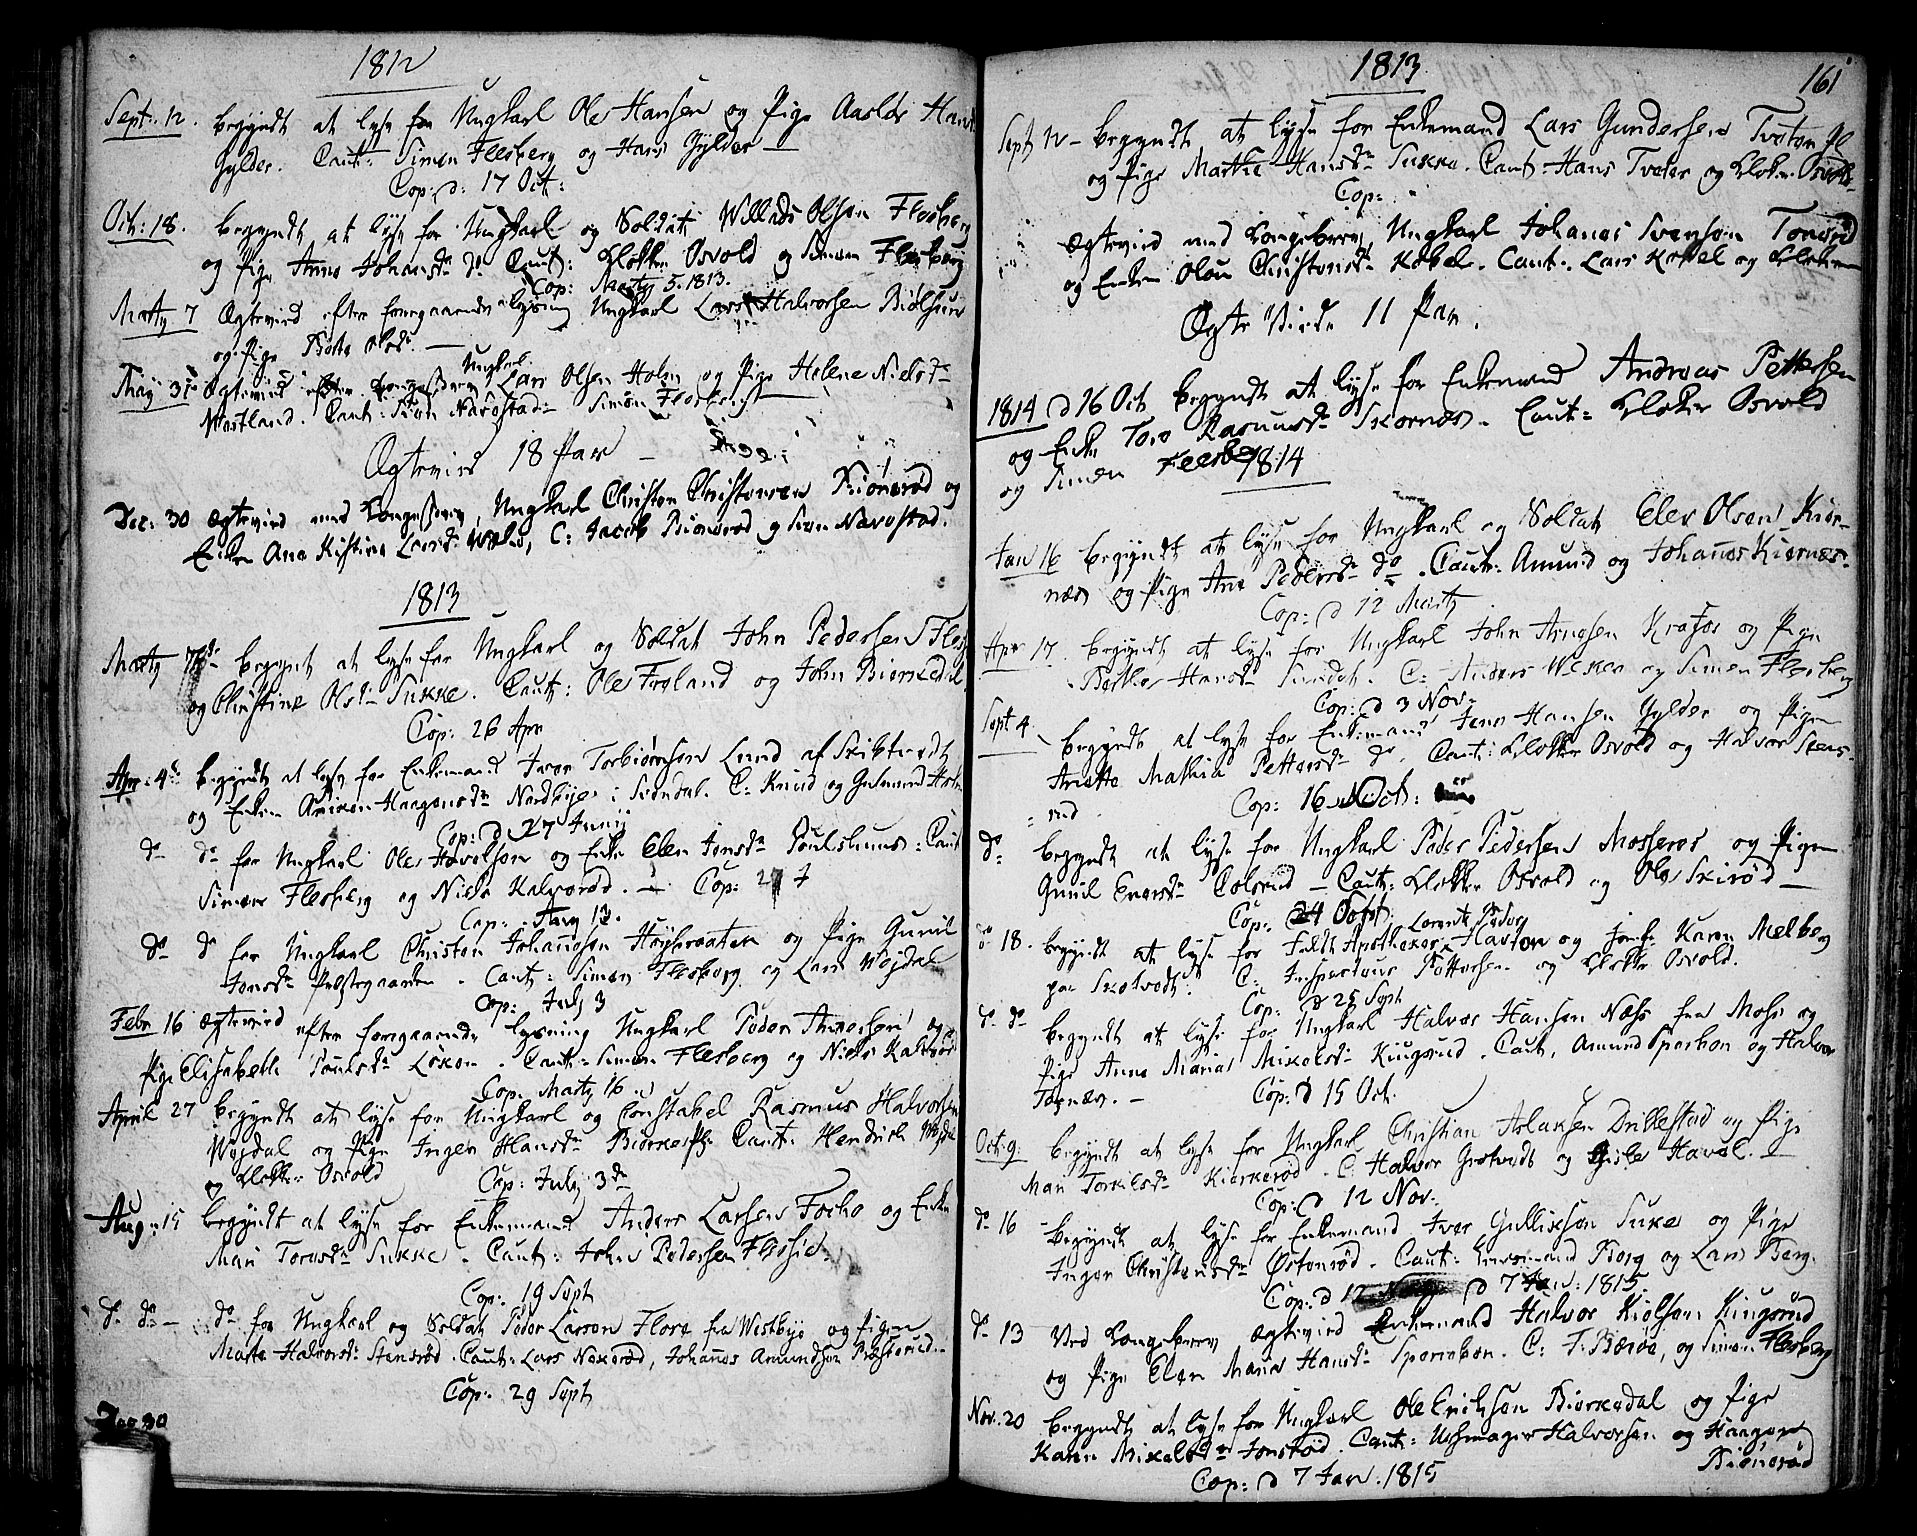 1812
Sept: 12. begyndt at lyse for Ungkarl Ole Hansen og Pige Aaslov Hans
Gylder. Caut: Simen Flesberg og Hans Gylder —
Cop: d: 17 Oct:
Oct: 18. begyndt at lyse for Ungkarl og Soldat Willads Olsen Flesberg
og Pige Anne Johansdr do Caut: Klokker Osvold og Simen Flesberg
Cop: Marty 5. 1813.
Marty 7 Ægtevied efter foregaaende lysning Ungkarl Lars Halvorsen
og Pige Berte Olsdr. —
Ungkarl
May 31 Ægtevied efter Lars Olsen Holm og Pige Helene Nielsdr
Westland. Caut: Navestad Simen Flesberg
Ægtevied 18 Par —
Dec: 30 Ægtevied med Kongebrev, Ungkarl Christen Christensen Biønerød og
Enken Ana Kistine Larsdr C: Jacob Biønerød og Navestad.
1813
Marty begynt at lyse for Ungkarl og Soldat John Pedersen
og Christine Olsdr Sukke. Caut: Ole Frøland og John Biørkedal
Cop: 26 Apr
Apr: 4de begyndt at lyse for Enkemand Iver Torbiørnsen Lund af Skibtvedt
og Enken Haagensdr Nordbye i C: Knud og Gulmund
Cop: d 27 Junij
do do for Ungkarl Ole og Enke Elen Jonsdr Poulshuus: Caut
Simen Flesberg og Niels Kalverød. — Cop: 27 J
Cop:
do do for Ungkarl Christen Johannesen Høybraaten og Pige Gunil
Jonsdr Præstegaarden. Caut: Simen Flesberg og Lars Wojdal
Cop: July 3
Febr 16 Ægtevied efter foregaaende lysning Ungkarl Peder og
Pige Elisabeth Poulsdr Løken. Caut: Simen Flesberg og Niels Kalverød
Cop: Marty 16
April 27 begyndt at lyse for Ungkarl og Constabel Rasmus Halvorsen
Wojdal og Pige Ingen Hansdr Caut: Hendrich Wojdal
og Klokker Osvold Cop: July 3de
Aug: 15 begyndt at lyse for Enkemand Anders Larsen og Enke
Mari Toresdr Sukke. Caut: John Pedersen
Cop: 19 Sept
do do — do for Ungkarl og Soldat Peder Larsen fra Westbye og Pigen
Marte Halvorsdr Stensrød. Caut: Lars Johannes Amundsen
Cop: 29 Sept
30
1813
161
Sept 12 — begyndt at lyse for Enkemand Lars Gundersen Tveten
og Pige Marthe Hansdr Sukke. Caut: Hans Tveter og Klokker Osvold
Cop:
Ægtevied med Kongebrev, Ungkarl Johanes Svensen
og Enken Olea Christensdr Kobel. Caut: Lars Kobel og Klokkeren
Ægte Viede 11 Par.
1814 d 16 Oct begyndt at lyse for Enkemand Andreas Pettersen
og Enke Tore Rasmusdr Skornæs. Caut: Klokker Osvold
og Simen Flesberg
1814
Jan 16 begyndt at lyse for Ungkarl og Soldat Elev Olsen Kior-
næs og Pige Ane Pedersdr do. Caut: Amund og Johannes Kiornæs.
Cop: d 12 Marty
Apr 17. begyndt at lyse for Ungkarl John Arnesen Krafos og Pige
Berthe Hansdr C: Anders og Simen Flesberg
Cop: d 3 Nov.
Sept 4 begyndt at lyse for Enkemand Jens Hansen Gylder og Pigen
Anette Mathia Pettersdr do. Caut: Klokker Osvold og Halvor Stens-
rud Cop: 16 Oct:
do begyndt at lyse for Ungkarl Peder Pedersen Mosserøs og Pigen
Gunil — Caut: Klokker Osvold og Ole Skirød —
Cop: 24 Sept: Lorentz Peder
do 18. begyndt at lyse for Feldt Apotheker og Jomfr: Karen Melberg
paa Skotvedt. C: Inspecteur Pettersen og Klokker Osvold.
Cop: d 25 Sept
do do begyndt at lyse for Ungkarl Halvor Hansen Næss fra Moss og
Pige Anne Maria Mikelsdr Kingsrud. Caut, Amund Sperrebon og Halvor
Cop: d 15 Oct.
Oct: 9. begyndt at lyse for Ungkarl Christian Aslaksen Drillestad og Pige
Mari Torkilsdr Kierkerød. C: Halvor Grotvedt og Gisle Haval. —
Cop: d 12 Nov:
do 16 begyndt at lyse for Enkemand Iver Gulliksen Suke og Pige
Inger Christensdr Østenrød. Caut: Borg og Lars Berg.
Cop: d d 7 Jan: 1815
do 13 Ved Kongebrev ægtevied Enkemand Halvor Kielsen Kingsrud
og Pige Elen Maria Hansdr Sperrebon. C: og Simen Flesberg
Nov: 20 begyndt at lyse for Ungkarl Ole Eriksen Biørkedal og Pige
Karen Mikelsdr Jonsrød. Caut: Uhrmager Halvorsen og Haagen
Biønerød
Cop: d 7 Jan. 1815